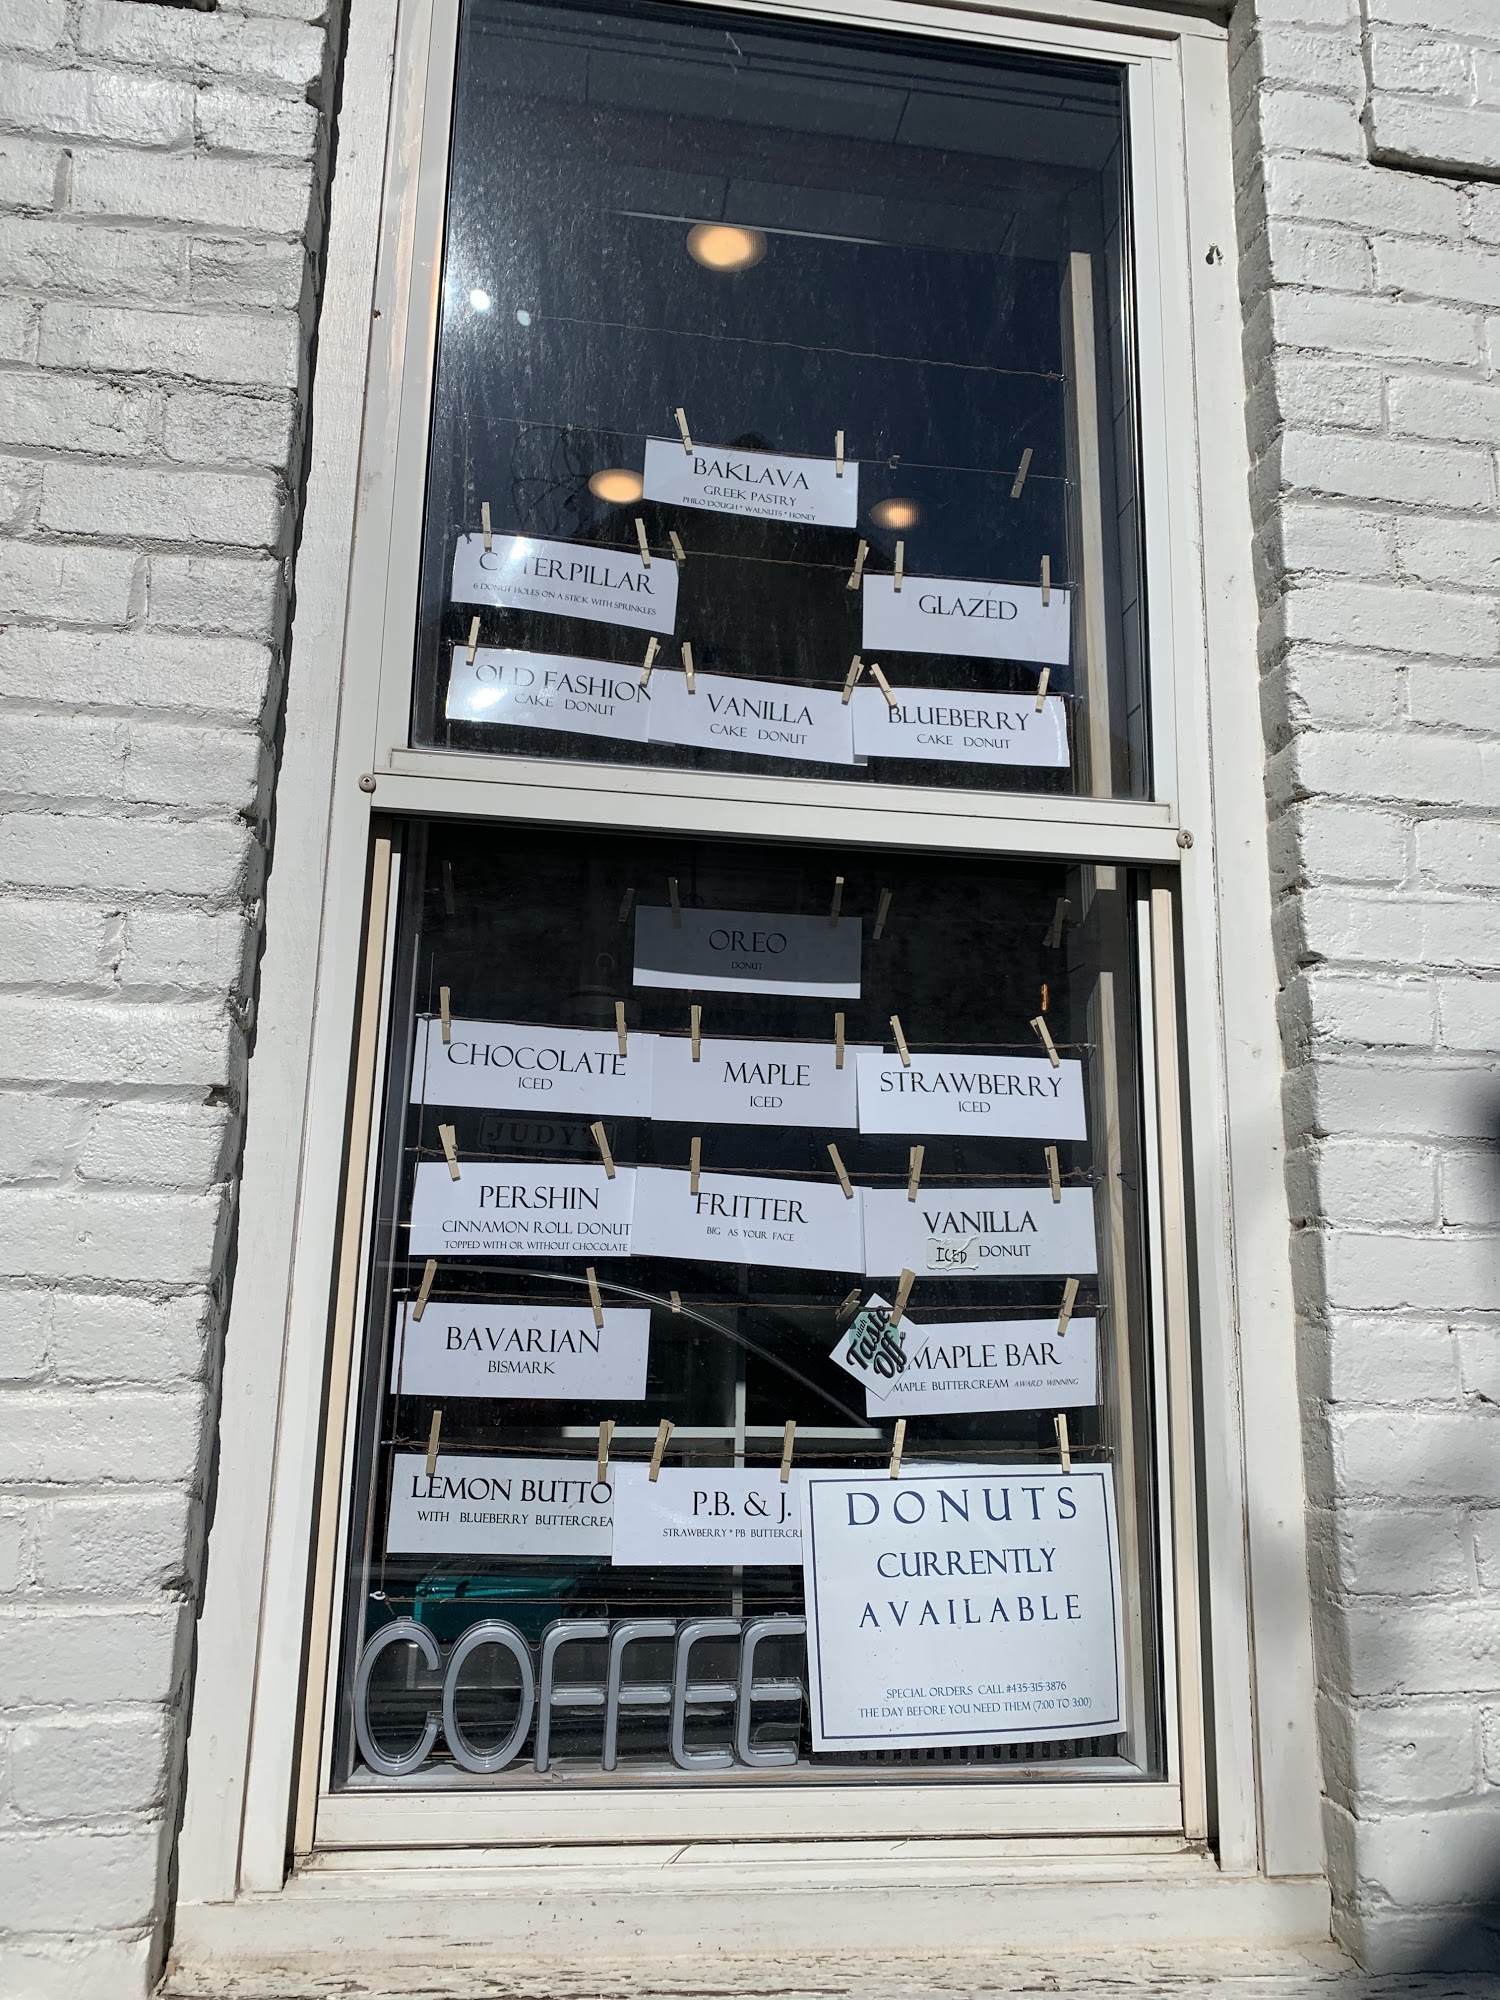 BAKLAVA
GREEK PASTRY
PHILO DOUGH * WALNUTS * HONEY
CATERPILLAR
6 DONUT HOLES ON A STICK WITH SPRINKLES
GLAZED
OLD FASHION
CAKE DONUT
VANILLA
CAKE DONUT
BLUEBERRY
CAKE DONUT
OREO
DONUT
CHOCOLATE
ICED
MAPLE
ICED
STRAWBERRY
ICED
JUDY'S
PERSHIN
CINNAMON ROLL DONUT
TOPPED WITH OR WITHOUT CHOCOLATE
FRITTER
BIG AS YOUR FACE
VANILLA
ICED DONUT
BAVARIAN
BISMARK
utah
Taste
Off
MAPLE BAR
MAPLE BUTTERCREAM AWARD WINNING
LEMON BUTTO
WITH BLUEBERRY BUTTERCREA
P.B. & J.
STRAWBERRY * PB BUTTERCR
DONUTS
CURRENTLY
AVAILABLE
SPECIAL ORDERS CALL #435-315-3876
THE DAY BEFORE YOU NEED THEM (7:00 TO 3:00)
COFFEE